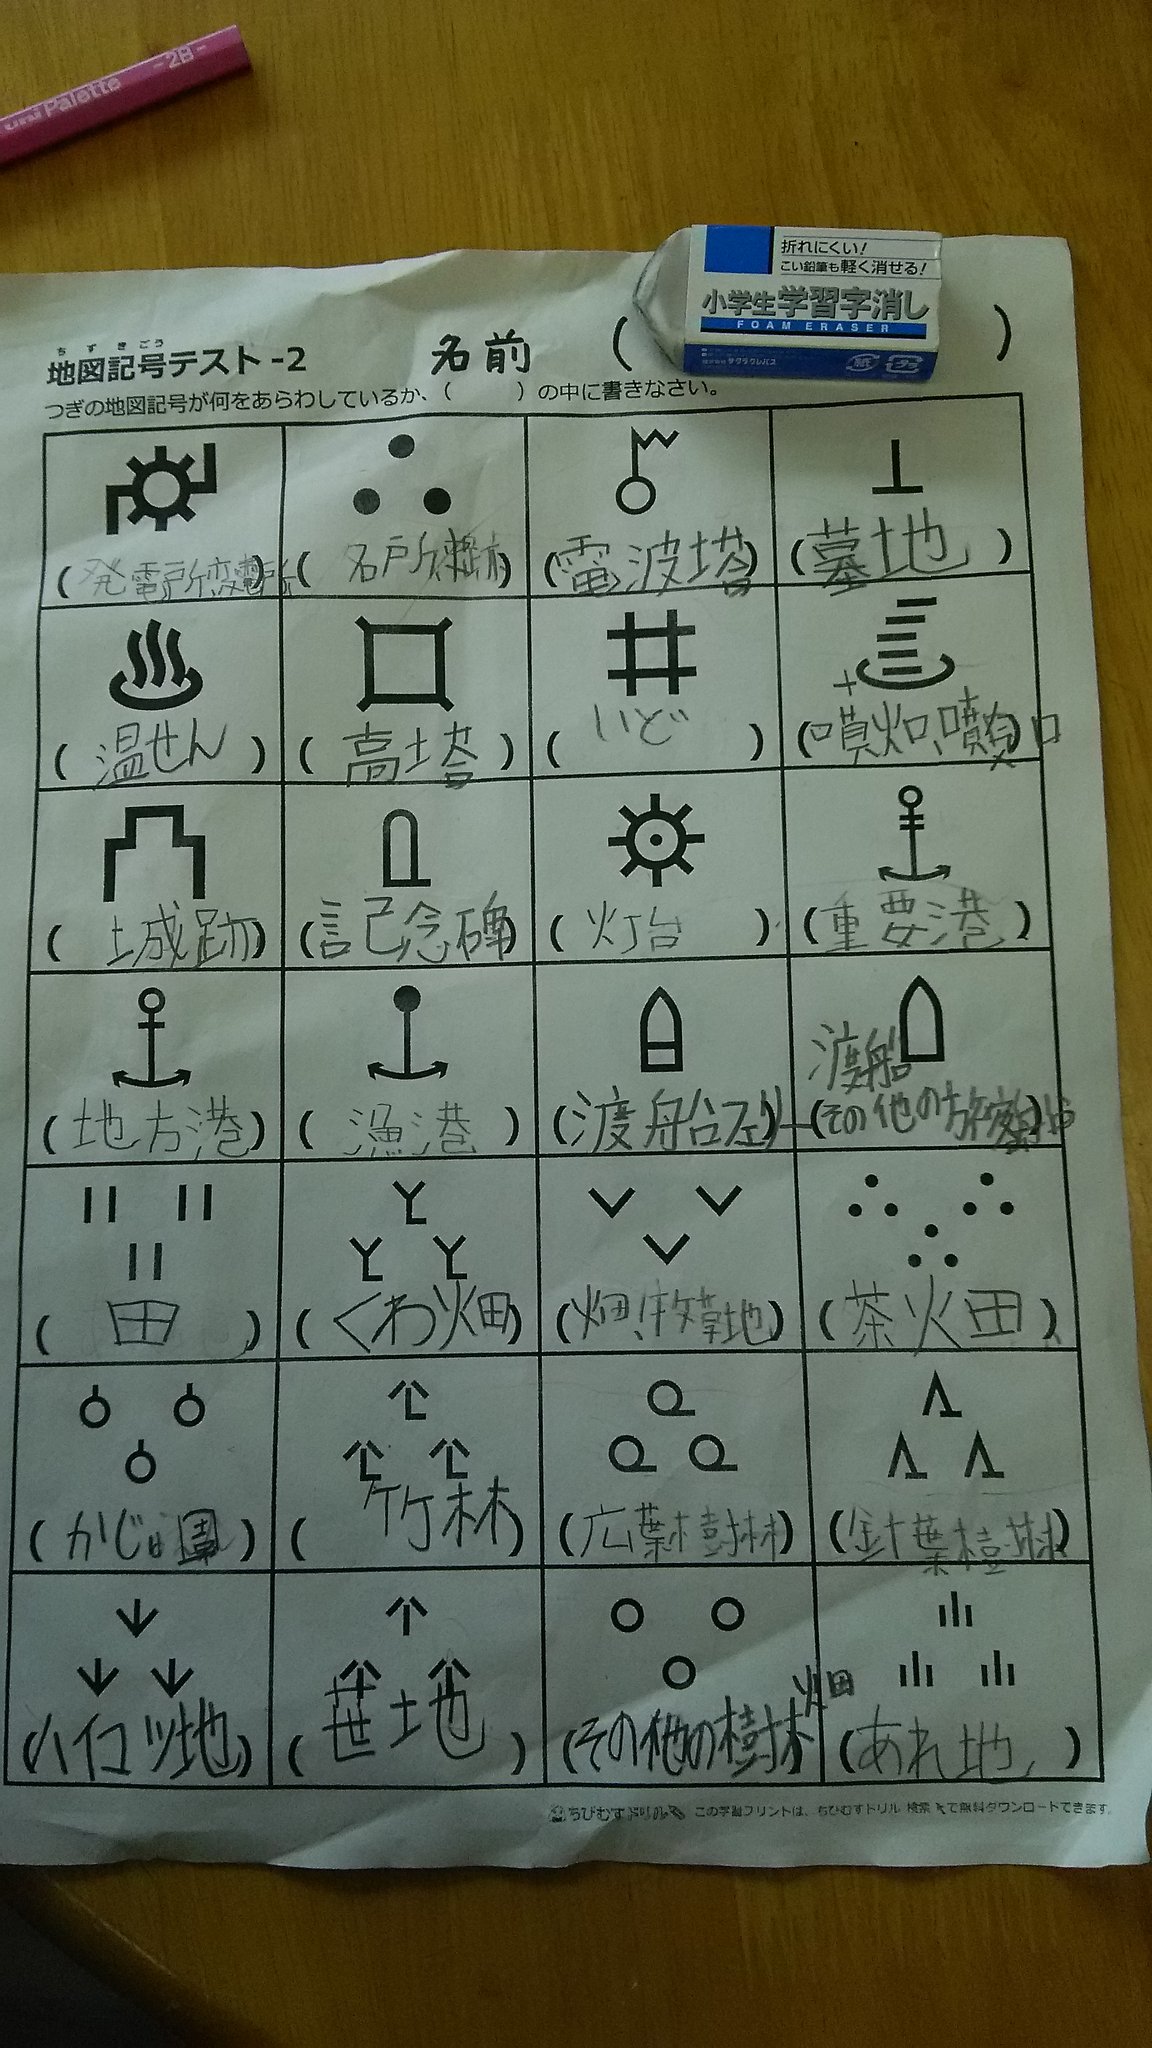 uni Palette -2B-
折れにくい!
こい鉛筆も軽く消せる!
小学生学習字消し
FOAM ERASER
株式会社サクラクレパス
紙 プラ
ちずきごう
地図記号テスト-2 名前 ( )
つぎの地図記号が何をあらわしているか、( )の中に書きなさい。
(発電所変電所) (名所旧跡) (電波塔) (墓地)
(温せん) (高塔) (いど) (噴火口、噴気口)
(城跡) (記念碑) (灯台) (重要港)
渡船
(地方港) (漁港) (渡船フェリー) (その他の旅客船)
(田) (くわ畑) (畑、牧草地) (茶畑)
(かじゅ園) (竹林) (広葉樹林) (針葉樹林)
(ハイマツ地) (笹地) (その他の樹林畑) (あれ地)
ちびむすドリル この学習プリントは、ちびむすドリル 検索 で無料ダウンロードできます